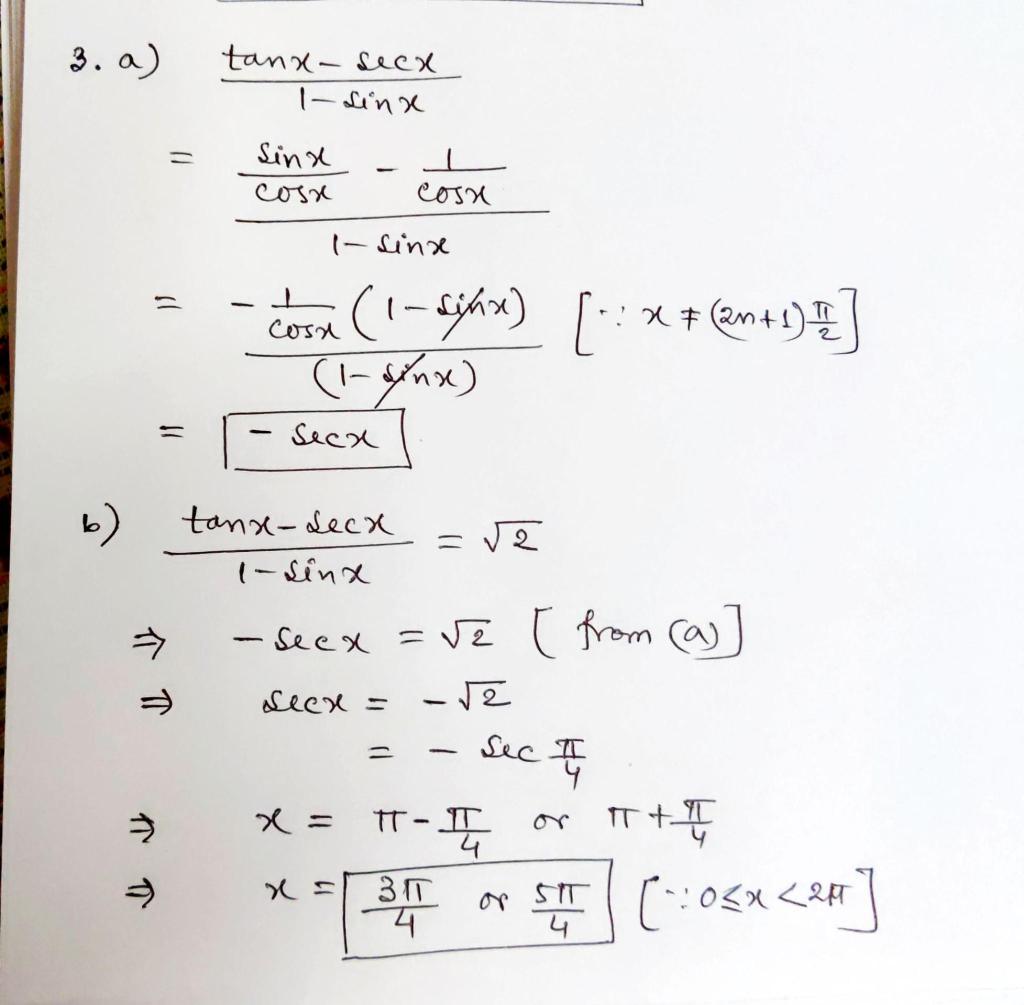 3. a) (tanx - secx)/(1 - sinx)
= (sinx/cosx - 1/cosx)/(1 - sinx)
= (-1/cosx (1 - sinx))/((1 - sinx)) [∵ x ≠ (2n+1)π/2]
= - secx
b) (tanx - secx)/(1 - sinx) = √2
⇒ - secx = √2 [ from (a)]
⇒ secx = - √2
= - sec π/4
⇒ x = π - π/4 or π + π/4
⇒ x = 3π/4 or 5π/4 [∵ 0≤x<2π]